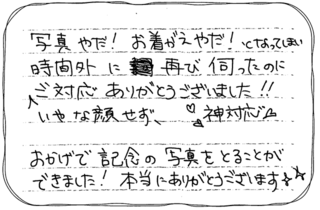 写真やだ！お着がえやだ！となってしまい
時間外に再び伺ったのに
ご対応ありがとうございました!!
いやな顔せず、♡神対応♡
おかげで記念の写真をとることが
できました！本当にありがとうございます☆☆